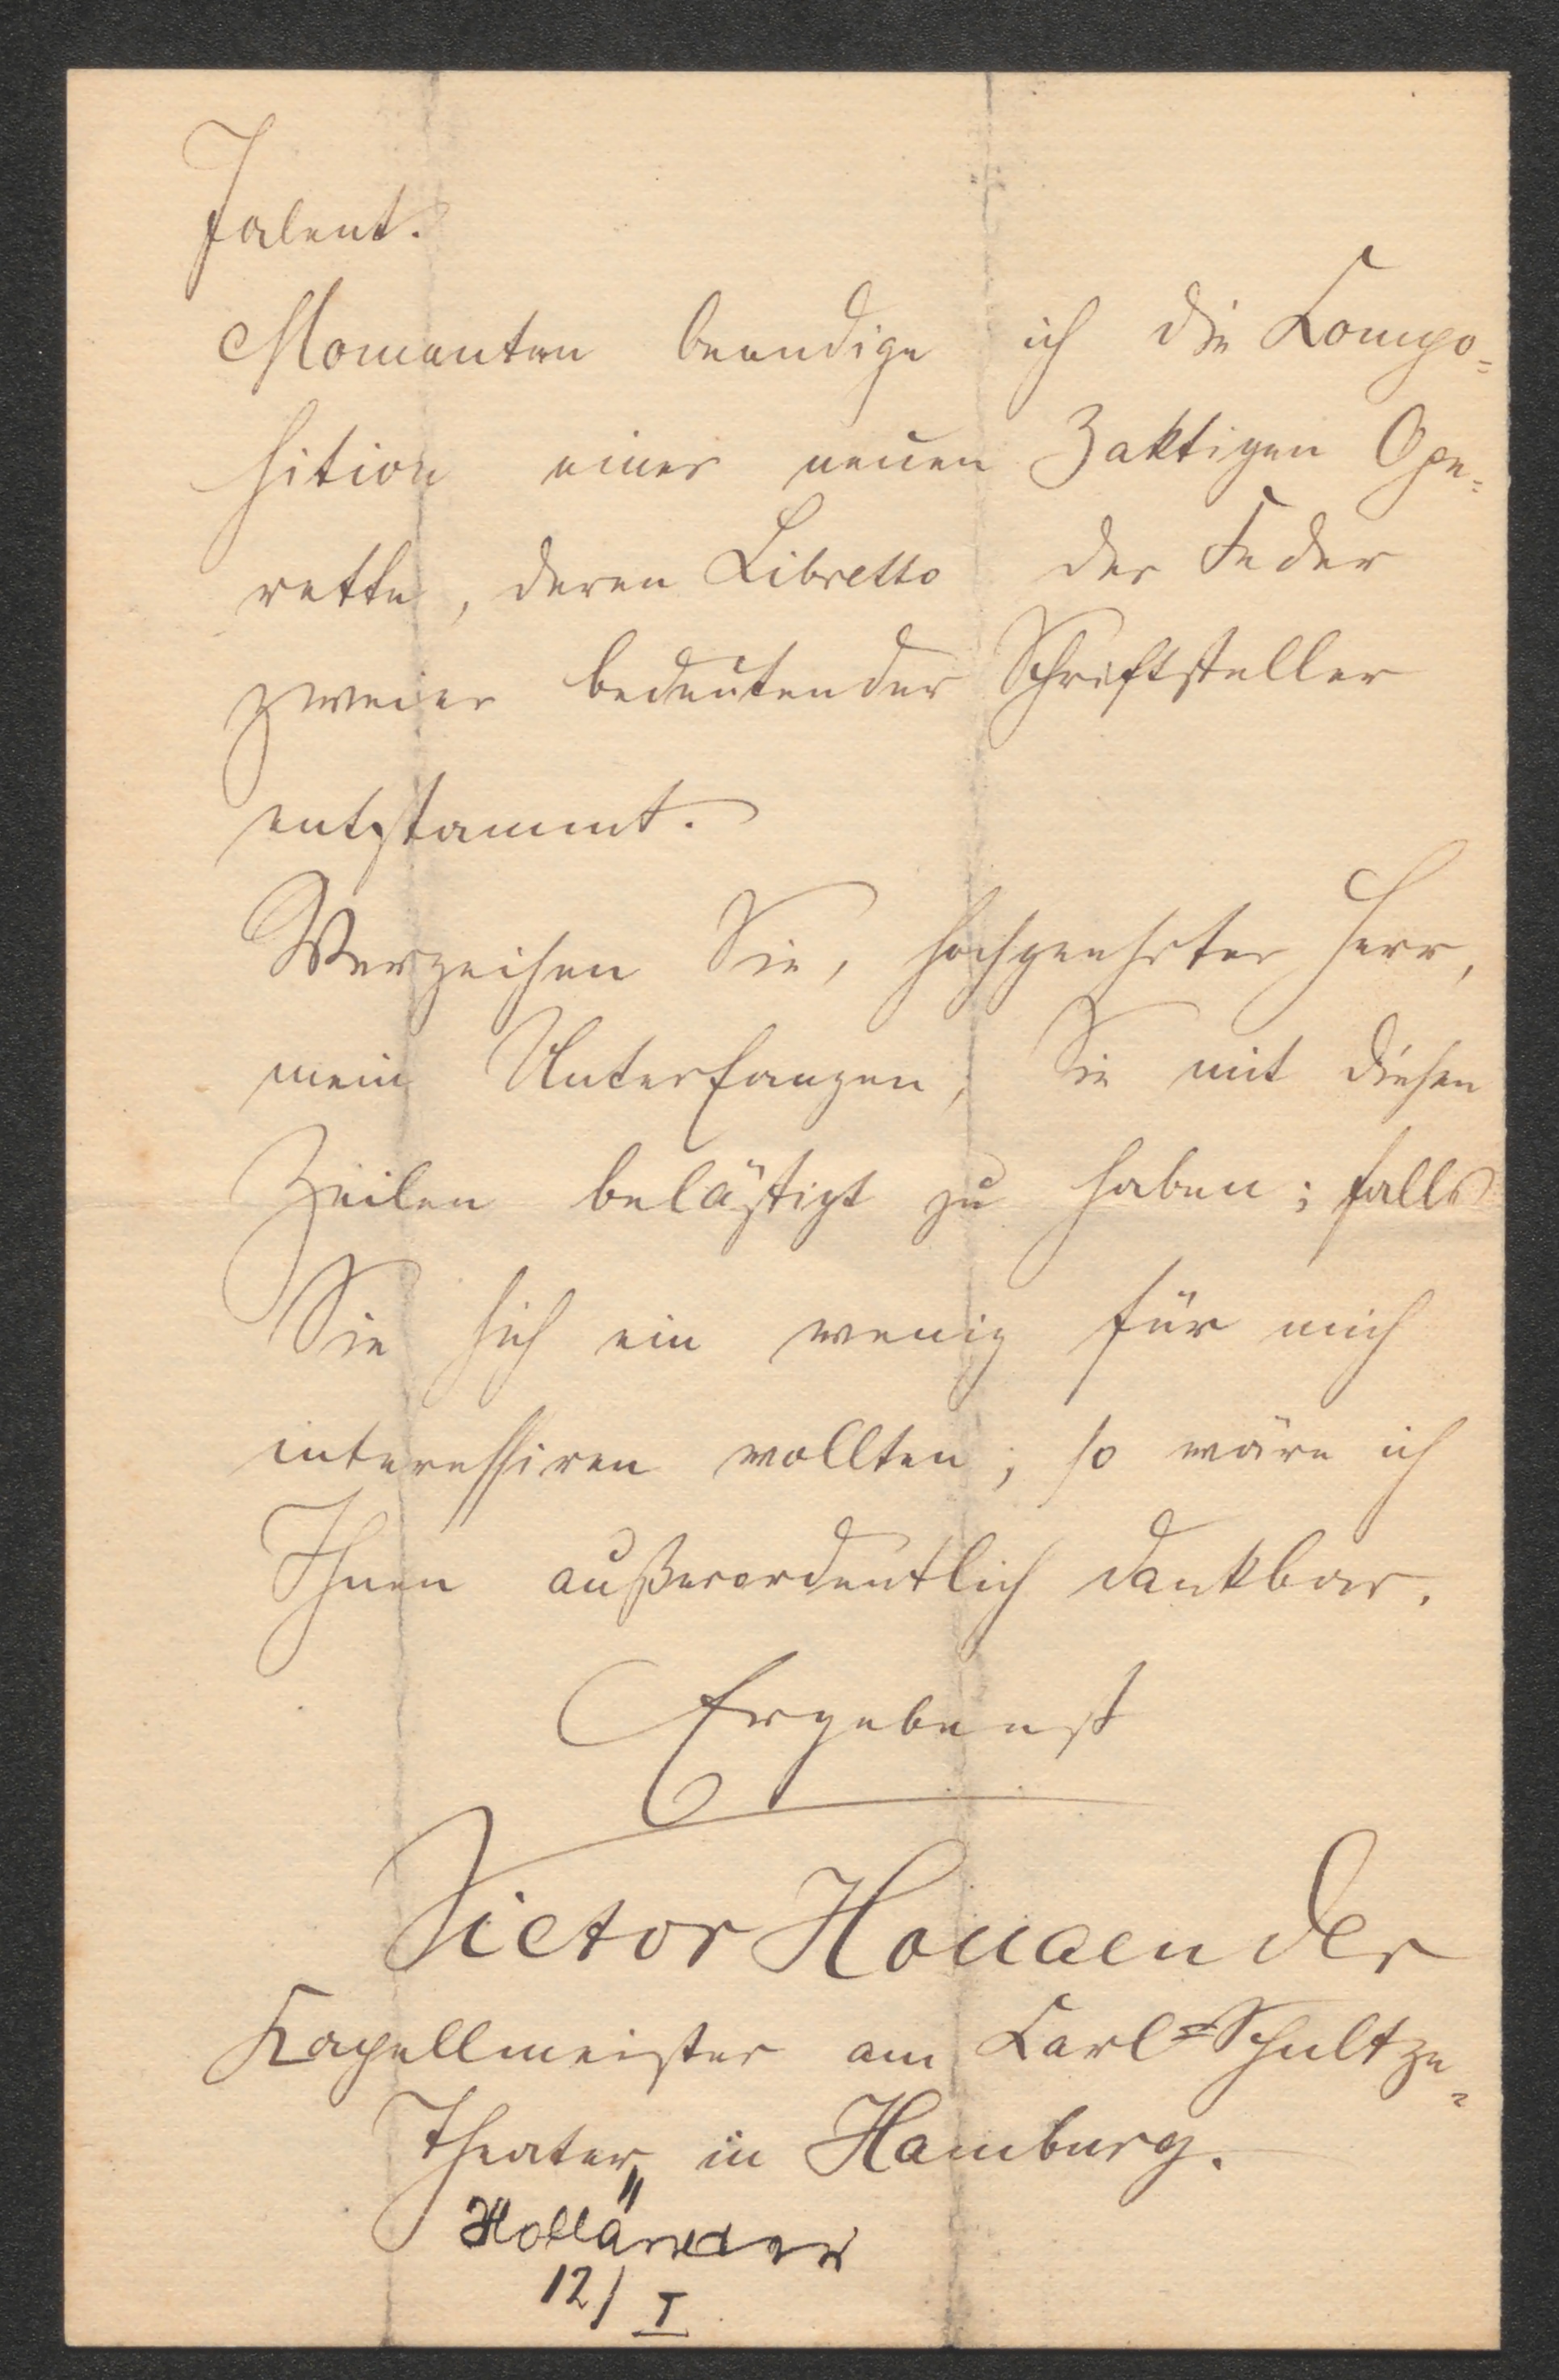 Talent.
Momentan beendige ich die Kompo=
sition einer neuen 3aktigen Ope=
rette, deren Libretto der Feder
zweier bedeutender Schriftsteller
entstammt.
Verzeihen Sie, hochgeehrter Herr,
mein Unterfangen, Sie mit diesen
Zeilen belästigt zu haben; falls
Sie sich ein wenig für mich
interessiren wollten, so wäre ich
Ihnen außerordentlich dankbar.
Ergebenst
Victor Hollaender
Kapellmeister am Carl=Schultze=
Theater in Hamburg.
Holländer
12/I